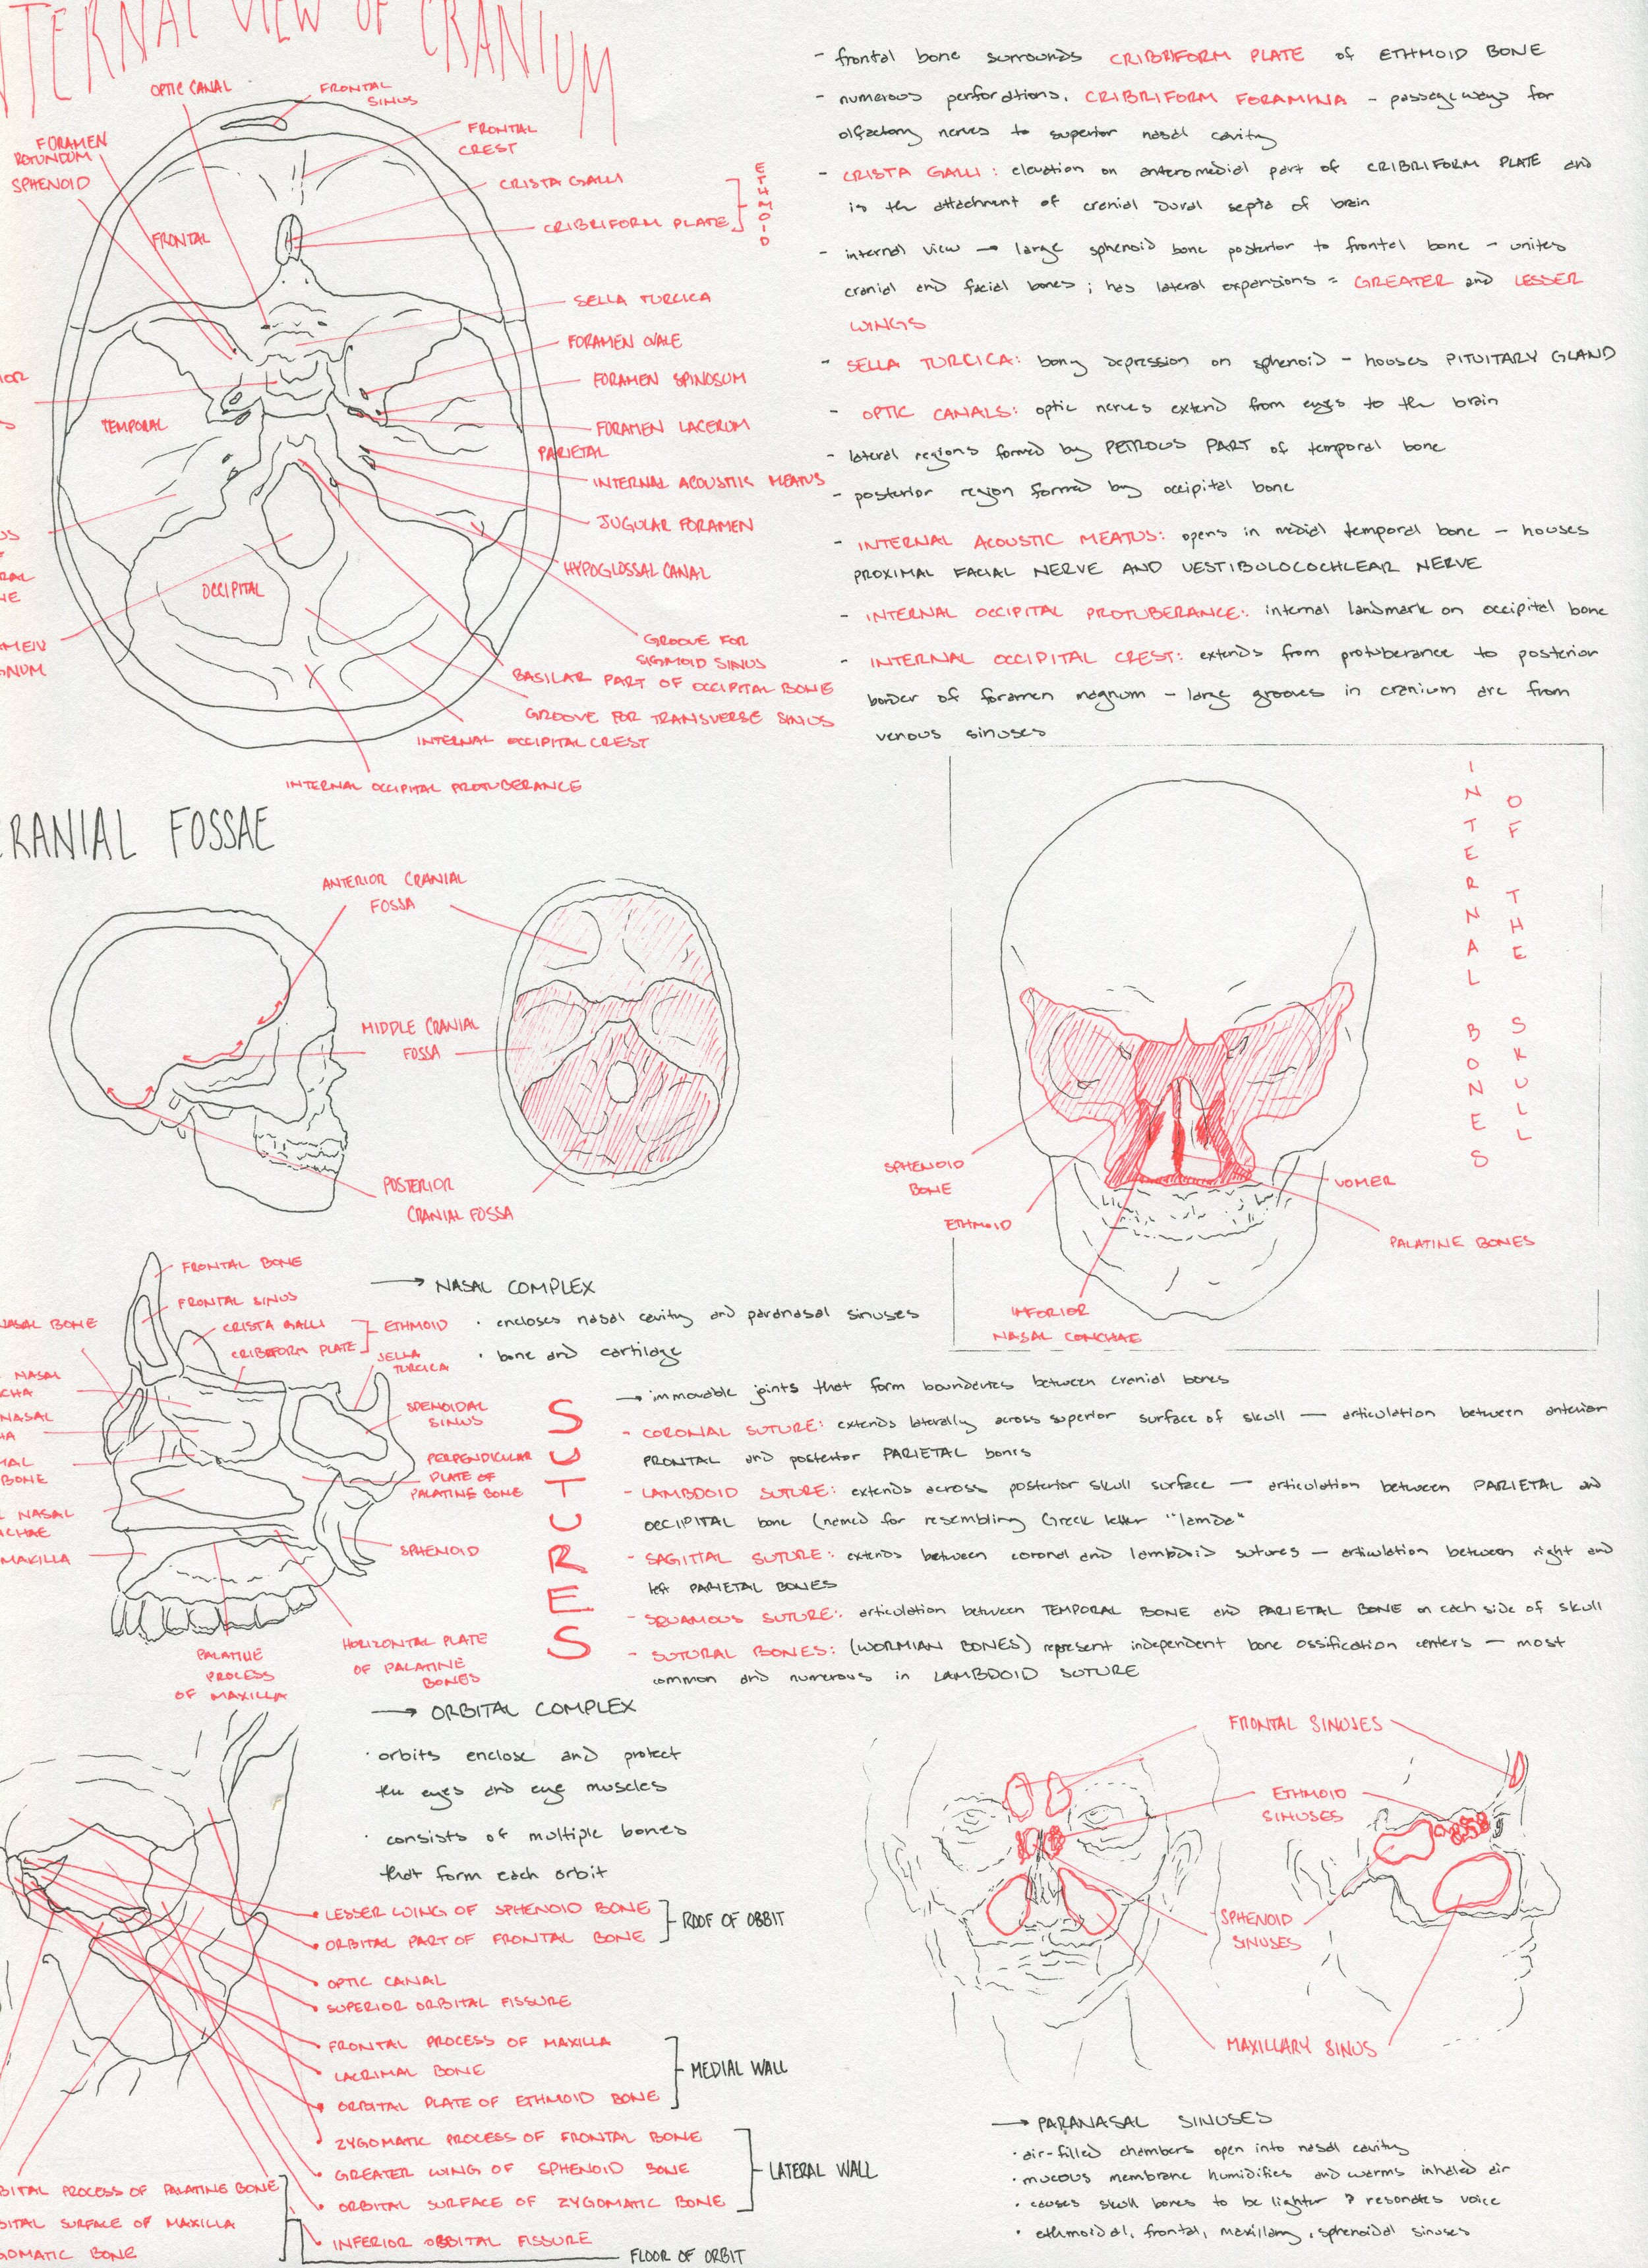 INTERNAL VIEW OF CRANIUM
OPTIC CANAL
FRONTAL
SINUS
FORAMEN
ROTUNDUM
SPHENOID
FRONTAL
CREST
CRISTA GALLI
CRIBRIFORM PLATE
ETHMOID
FRONTAL
SELLA TURCICA
FORAMEN OVALE
FORAMEN SPINOSUM
FORAMEN LACERUM
TEMPORAL
PARIETAL
INTERNAL ACOUSTIC MEATUS
JUGULAR FORAMEN
HYPOGLOSSAL CANAL
OCCIPITAL
GROOVE FOR
SIGMOID SINUS
BASILAR PART OF OCCIPITAL BONE
GROOVE FOR TRANSVERSE SINUS
INTERNAL OCCIPITAL CREST
INTERNAL OCCIPITAL PROTUBERANCE
- frontal bone surrounds CRIBRIFORM PLATE of ETHMOID BONE
- numerous perforations, CRIBRIFORM FORAMINA - passageways for
olfactory nerves to superior nasal cavity
- CRISTA GALLI: elevation on anteromedial part of CRIBRIFORM PLATE and
is the attachment of cranial dural septa of brain
- internal view → large sphenoid bone posterior to frontal bone - unites
cranial and facial bones; has lateral expansions = GREATER and LESSER
WINGS
- SELLA TURCICA: bony depression on sphenoid - houses PITUITARY GLAND
- OPTIC CANALS: optic nerves extend from eyes to the brain
- lateral regions formed by PETROUS PART of temporal bone
- posterior region formed by occipital bone
- INTERNAL ACOUSTIC MEATUS: opens in medial temporal bone - houses
PROXIMAL FACIAL NERVE AND VESTIBULOCOCHLEAR NERVE
- INTERNAL OCCIPITAL PROTUBERANCE: internal landmark on occipital bone
- INTERNAL OCCIPITAL CREST: extends from protuberance to posterior
border of foramen magnum - large grooves in cranium are from
venous sinuses
CRANIAL FOSSAE
ANTERIOR CRANIAL
FOSSA
MIDDLE CRANIAL
FOSSA
POSTERIOR
CRANIAL FOSSA
INTERNAL BONES
OF THE SKULL
SPHENOID
BONE
ETHMOID
VOMER
PALATINE BONES
INFERIOR
NASAL CONCHAE
FRONTAL BONE
FRONTAL SINUS
NASAL BONE
CRISTA GALLI
CRIBRIFORM PLATE
ETHMOID
SELLA
TURCICA
NASAL
NASAL
BONE
NASAL
MAXILLA
SPENOIDAL
SINUS
PERPENDICULAR
PLATE OF
PALATINE BONE
SPHENOID
PALATINE
PROCESS
OF MAXILLA
HORIZONTAL PLATE
OF PALATINE
BONES
→ NASAL COMPLEX
· encloses nasal cavity and paranasal sinuses
· bone and cartilage
SUTURES
→ immovable joints that form boundaries between cranial bones
- CORONAL SUTURE: extends laterally across superior surface of skull — articulation between anterior
FRONTAL and posterior PARIETAL bones
- LAMBDOID SUTURE: extends across posterior skull surface — articulation between PARIETAL and
OCCIPITAL bone (named for resembling Greek letter "lamda"
- SAGITTAL SUTURE: extends between coronal and lambdoid sutures - articulation between right and
left PARIETAL BONES
- SQUAMOUS SUTURE: articulation between TEMPORAL BONE and PARIETAL BONE on each side of skull
- SUTURAL BONES: (WORMIAN BONES) represent independent bone ossification centers - most
common and numerous in LAMBDOID SUTURE
→ ORBITAL COMPLEX
· orbits enclose and protect
the eyes and eye muscles
· consists of multiple bones
that form each orbit
LESSER WING OF SPHENOID BONE
ORBITAL PART OF FRONTAL BONE
ROOF OF ORBIT
OPTIC CANAL
SUPERIOR ORBITAL FISSURE
FRONTAL PROCESS OF MAXILLA
LACRIMAL BONE
ORBITAL PLATE OF ETHMOID BONE
MEDIAL WALL
ZYGOMATIC PROCESS OF FRONTAL BONE
GREATER WING OF SPHENOID BONE
ORBITAL SURFACE OF ZYGOMATIC BONE
LATERAL WALL
BITAL PROCESS OF PALATINE BONE
BITAL SURFACE OF MAXILLA
GOMATIC BONE
INFERIOR ORBITAL FISSURE
FLOOR OF ORBIT
FRONTAL SINUSES
ETHMOID
SINUSES
SPHENOID
SINUSES
MAXILLARY SINUS
→ PARANASAL SINUSES
· air-filled chambers open into nasal cavity
· mucous membrane humidifies and warms inhaled air
· causes skull bones to be lighter & resonates voice
· ethmoidal, frontal, maxillary, sphenoidal sinuses